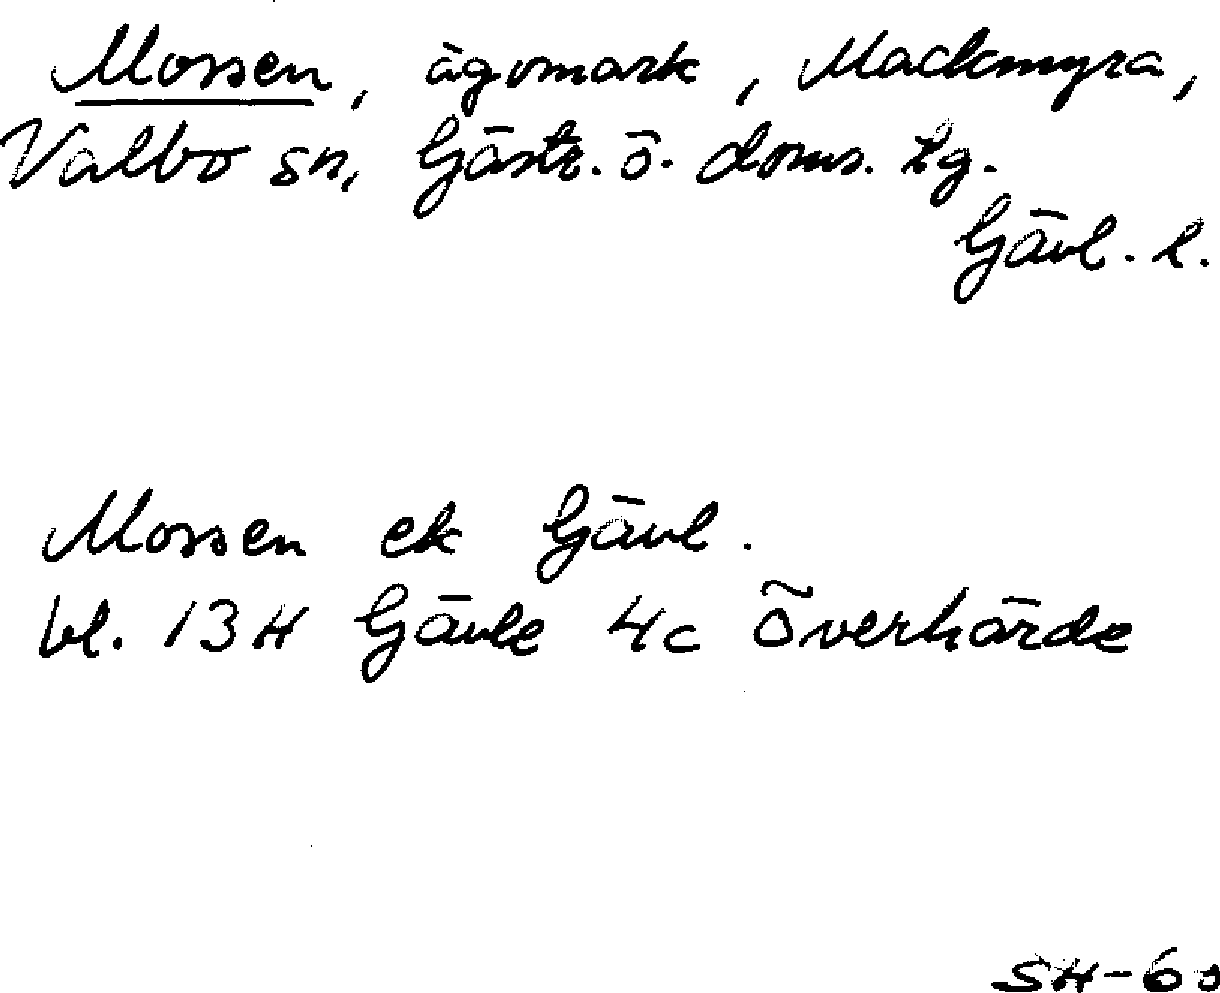 Mossen, ägomark, Mackmyra,
Valbo sn, Gästr. ö. doms. tg.
Gävl. l.
Mossen ek Gävl.
bl. 13H Gävle 4c Överhärde
SH-60